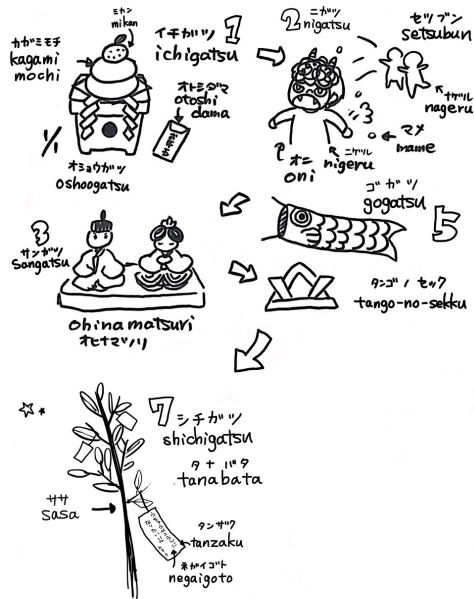 ミカン
mikan
カガミモチ
kagami
mochi
イチガツ
ichigatsu
1
オトシダマ
otoshi
dama
1/1
オショウガツ
oshoogatsu
2
ニガツ
nigatsu
セツブン
setsubun
ナゲル
nageru
マメ
mame
オニ
oni
ニゲル
nigeru
3
サンガツ
sangatsu
ohinamatsuri
オヒナマツリ
ゴガツ
gogatsu
5
タンゴノセック
tango-no-sekku
7
シチガツ
shichigatsu
タナバタ
tanabata
ササ
sasa
タンザク
tanzaku
ネガイゴト
negaigoto